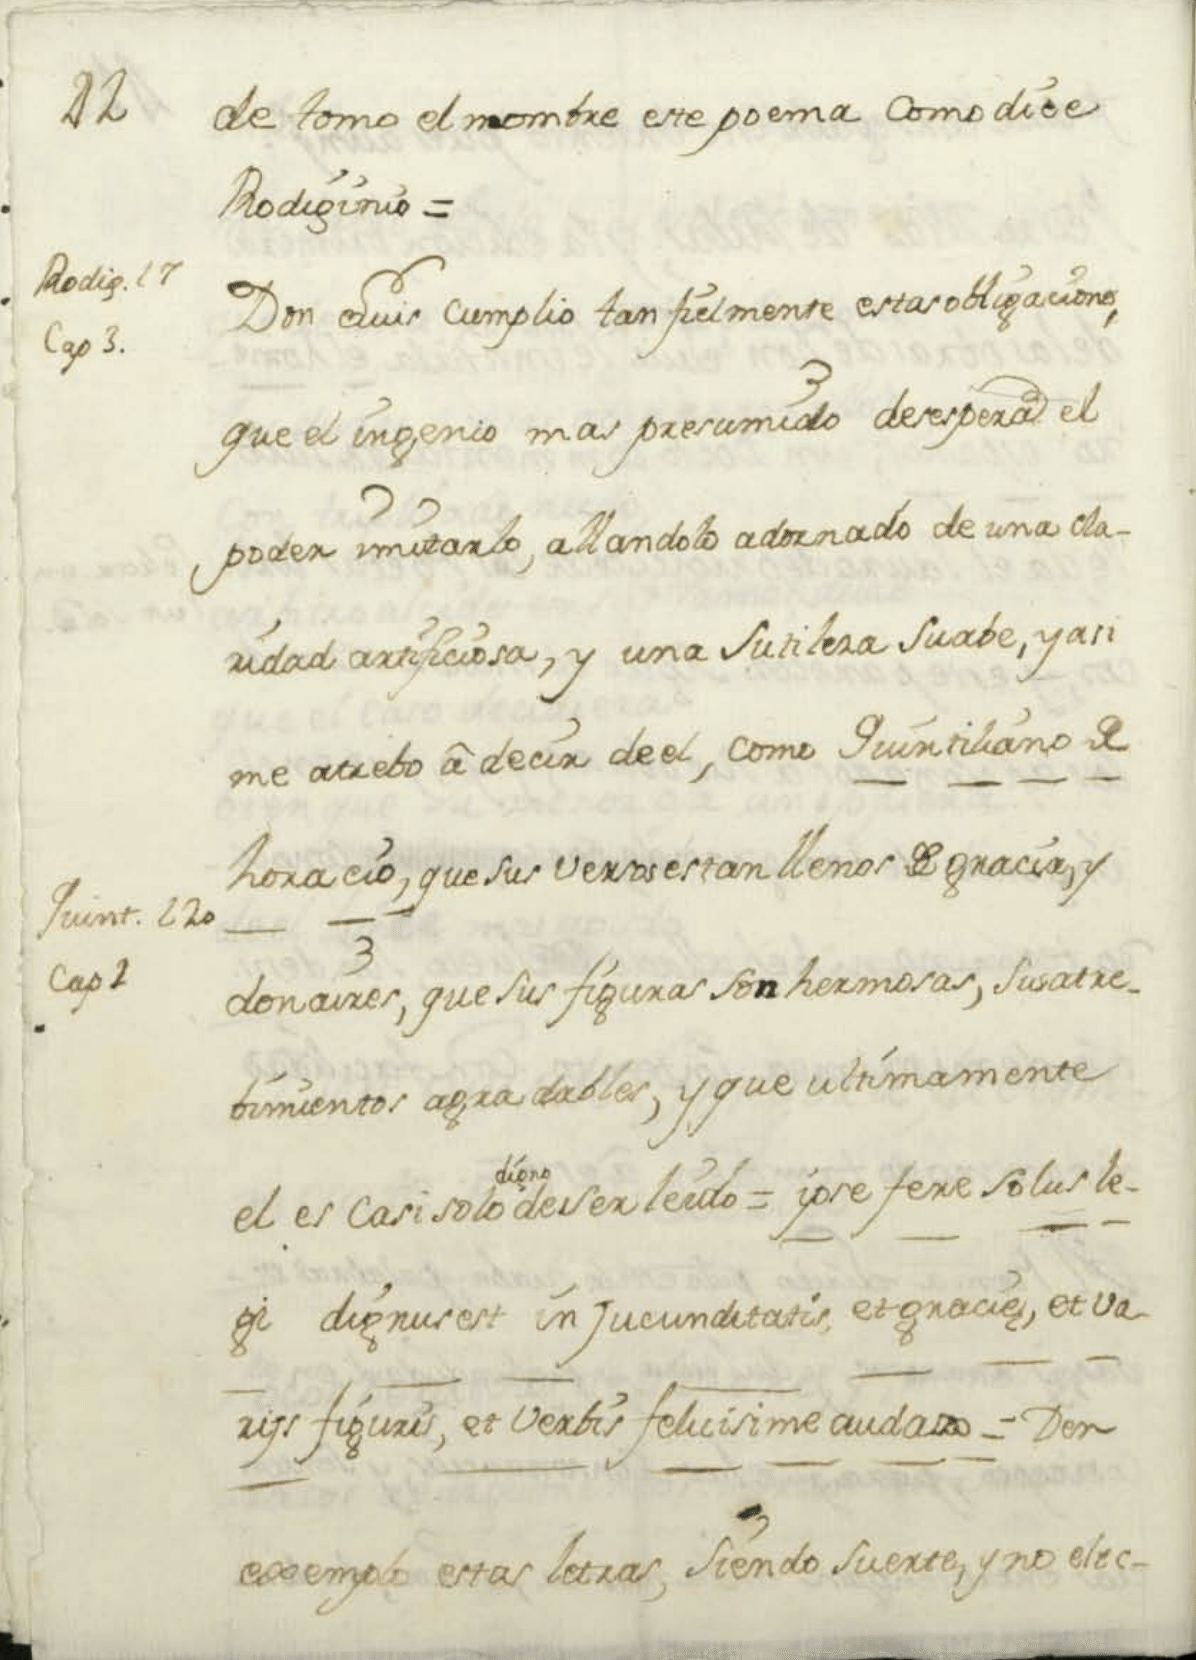 22
de tomo el nombre este poema como dice
Rodiginio =
Rodig. l 7
Cap 3.
Don Luis cumplio tan fielmente estas obligaciones,
que el ingenio mas presumido desespera el
poder imitarlo, allandolo adornado de una cla-
ridad artificiosa, y una sutileza suabe, y asi
me atrebo â decir de el, como Quintiliano de
horacio, que sus versos estan llenos de gracia, y
Quint. l 20
Cap 1
donaires, que sus figuras son hermosas, sus atre-
bimientos agradables, y que ultimamente
el es casi solo digno de ser leido = ipse fere solus le-
gi dignus est in jucunditatis, et gracię, et va-
rijs figuris, et verbis felicisime audax = Den
exemplo estas letras, siendo suerte, y no elec-